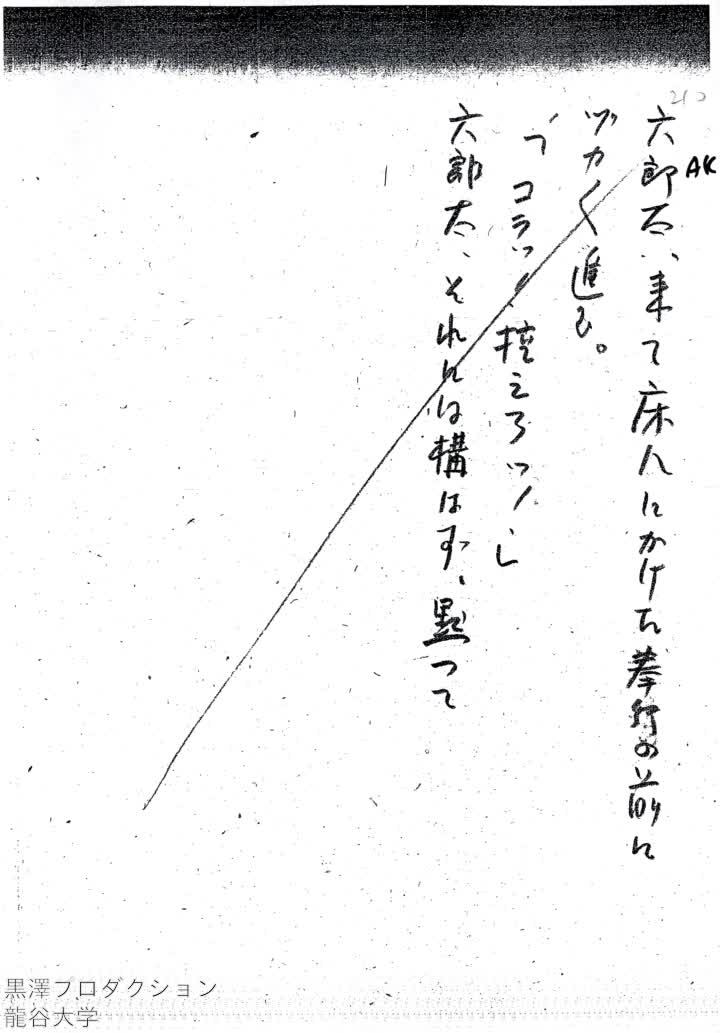 210
AK
六郎太、来て床几にかけた奉行の前に
ヅカ〱進む。
「コラツ、控えろツ！」
六郎太、それには構はず、黙つて
黒澤プロダクション
龍谷大学